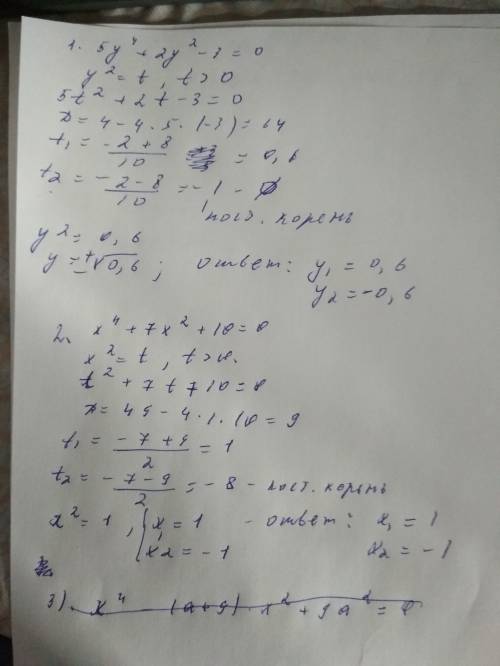 1. 5y⁴ + 2y² - 3 = 0
y² = t, t > 0
5t² + 2t - 3 = 0
D = 4 - 4 · 5 · (-3) = 64
t₁ = (-2 + 8)/10 = 0,6
t₂ = -(2 - 8)/10 = -1 - ∅
пост. корень
y² = 0,6
y = ±√0,6 ; ответ: y₁ = 0,6
y₂ = -0,6
2. x⁴ + 7x² + 10 = 0
x² = t, t > 0.
t² + 7t 7 10 = 0
D = 49 - 4 · 1 · 10 = 9
t₁ = (-7 + 9)/2 = 1
t₂ = -(7 - 9)/2 = -8 - пост. корень
x² = 1, { x₁ = 1 - ответ: x₁ = 1
x₂ = -1 x₂ = -1
3) x⁴ - (a+9) x² + 9a² = 0